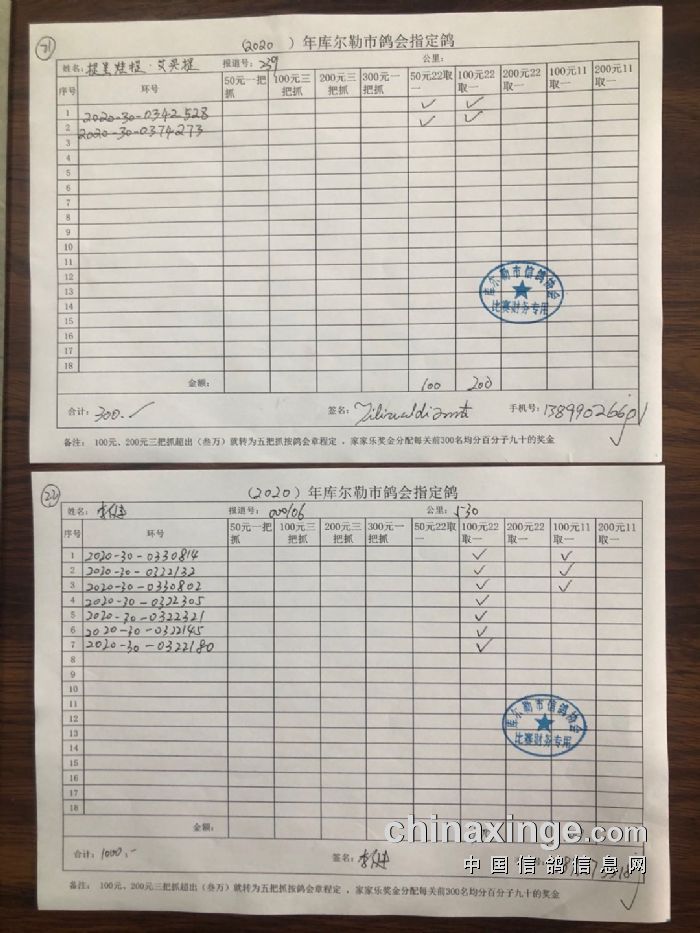 21
(2020 ) 年库尔勒市鸽会指定鸽
姓名: 提里娃提·艾买提 报道号: 239 公里:
序号 环号 50元一把抓 100元三把抓 200元三把抓 300元一把抓 50元22取一 100元22取一 200元22取一 100元11取一 200元11取一
1 2020-30-0342528 ✓ ✓
2 2020-30-0374273 ✓ ✓
3
4
5
6
7
8
9
10
11
12
13
14
15
16
17
18
库尔勒市信鸽协会
比赛财务专用
金额: 100 200
合计: 300.- 签名: 手机号:
备注: 100元、200元三把抓超出(叁万)就转为五把抓按鸽会章程定,家家乐奖金分配每关前300名均分百分子九十的奖金
22
(2020) 年库尔勒市鸽会指定鸽
姓名: 报道号: 000106 公里: 530
序号 环号 50元一把抓 100元三把抓 200元三把抓 300元一把抓 50元22取一 100元22取一 200元22取一 100元11取一 200元11取一
1 2020-30-0330814 ✓ ✓
2 2020-30-0322132 ✓ ✓
3 2020-30-0330802 ✓ ✓
4 2020-30-0322305 ✓
5 2020-30-0322321 ✓
6 2020-30-0322145 ✓
7 2020-30-0322180 ✓
8
9
10
11
12
13
14
15
16
17
18
库尔勒市信鸽协会
比赛财务专用
金额:
合计: 1000.- 签名:
备注: 100元、200元三把抓超出(叁万)就转为五把抓按鸽会章程定,家家乐奖金分配每关前300名均分百分子九十的奖金
chinaxinge.com
中国信鸽信息网